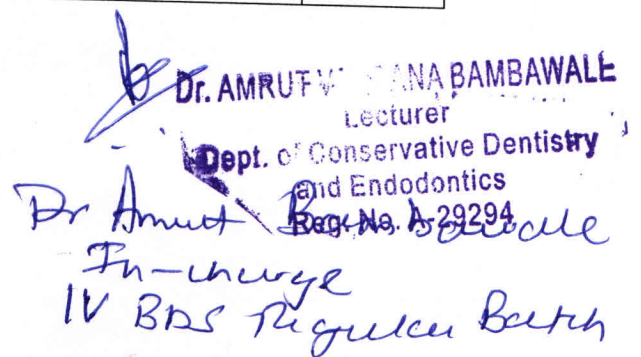 Dr. AMRUT BAMBAWALE
Lecturer
Dept. of Conservative Dentistry
and Endodontics
Reg. No. A-29294
Dr Amrut Bambawale
In-charge
IV BDS Regular Batch